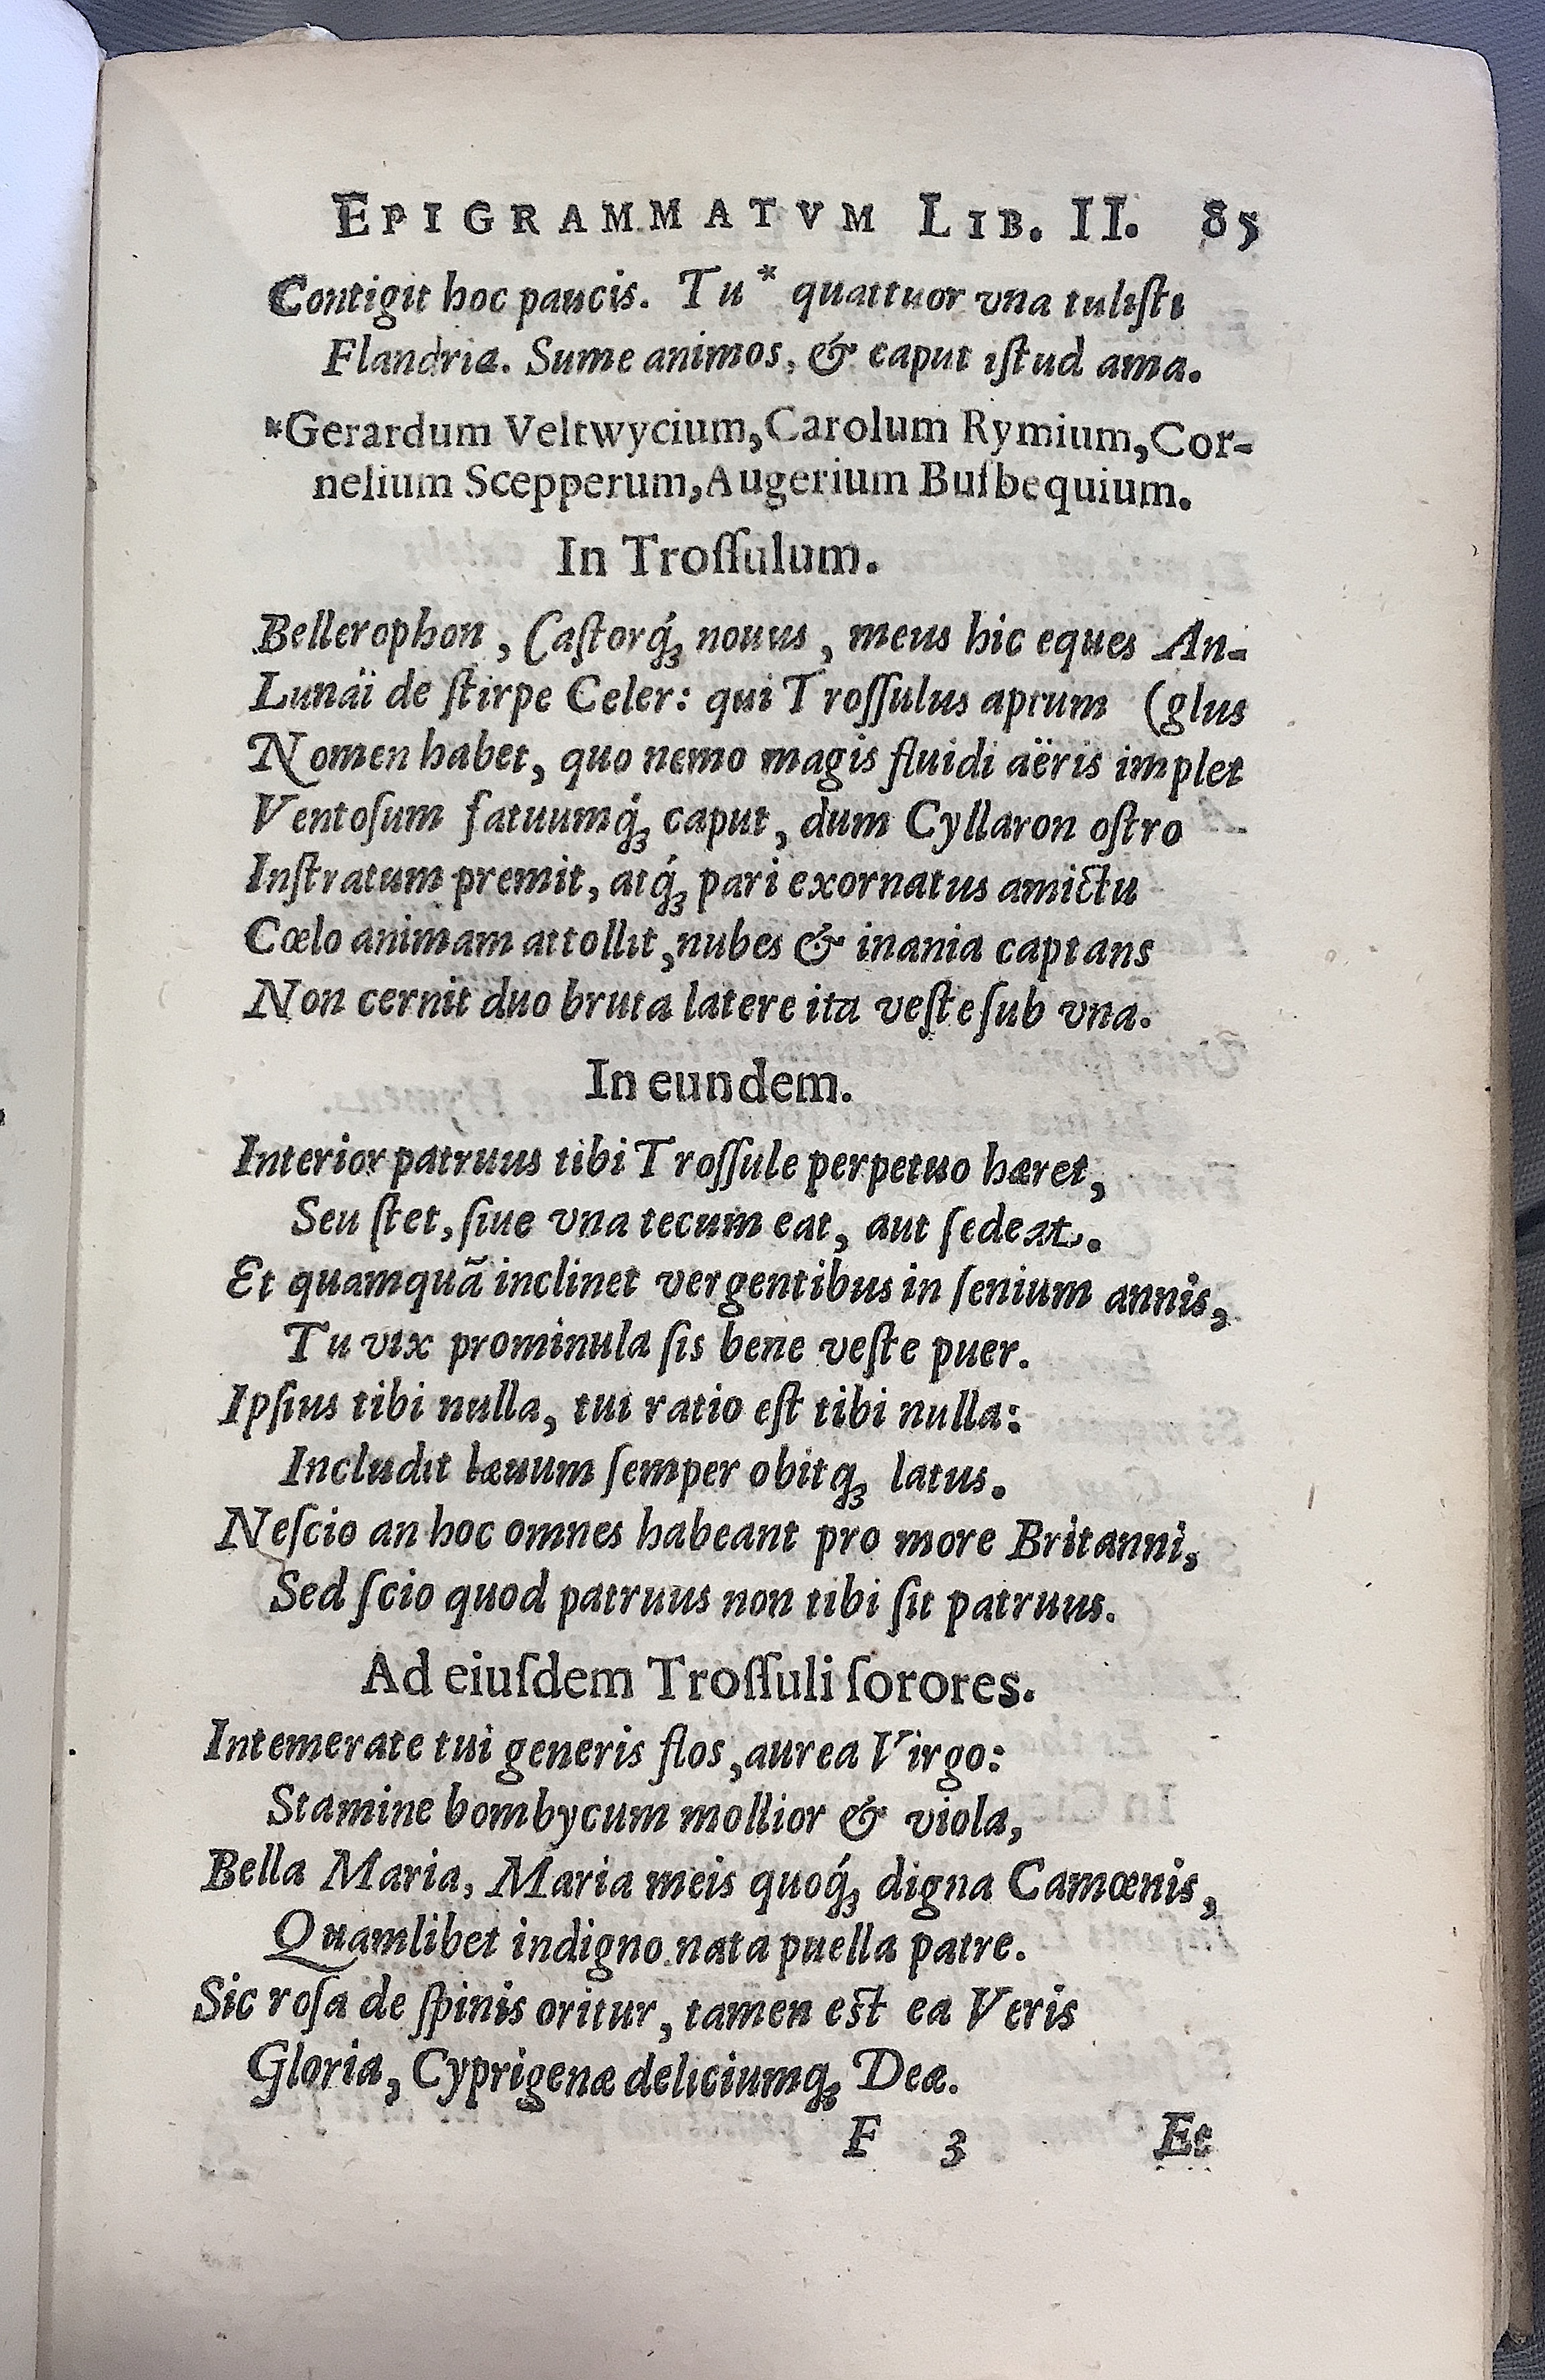 EPIGRAMMATVM LIB. II. 85
Contigit hoc paucis. Tu* quattuor vna tuliſti
Flandria. Sume animos, & caput iſtud ama.
*Gerardum Veltwycium, Carolum Rymium, Cor-
nelium Scepperum, Augerium Buſbequium.
In Troſſulum.
Bellerophon, Caſtorq́ꝫ nouus, meus hic eques An-
Lunäi de ſtirpe Celer: qui Troſſulus aptum (glus
Nomen habet, quo nemo magis fluidi aëris implet
Ventoſum fatuumq́ꝫ caput, dum Cyllaron oſtro
Inſtratum premit, atq́ꝫ pari exornatus amictu
Cœlo animam attollit, nubes & inania captans
Non cernit duo bruta latere ita veſte ſub vna.
In eundem.
Interior patruus tibi Troſſule perpetuo hæret,
Seu ſtet, ſiue vna tecum eat, aut ſedeat.
Et quamquã inclinet vergentibus in ſenium annis,
Tu vix prominula ſis bene veſte puer.
Ipſius tibi nulla, tui ratio eſt tibi nulla:
Includit læuum ſemper obitqꝫ latus.
Neſcio an hoc omnes habeant pro more Britanni,
Sed ſcio quod patruus non tibi ſit patruus.
Ad eiuſdem Troſſuli ſorores.
Intemerate tui generis flos, aurea Virgo:
Stamine bombycum mollior & viola,
Bella Maria, Maria meis quoq́ꝫ digna Camœnis,
Quamlibet indigno nata puella patre.
Sic roſa de ſpinis oritur, tamen eſt ea Veris
Gloria, Cyprigenæ deliciumqꝫ Deæ.
F 3 Et